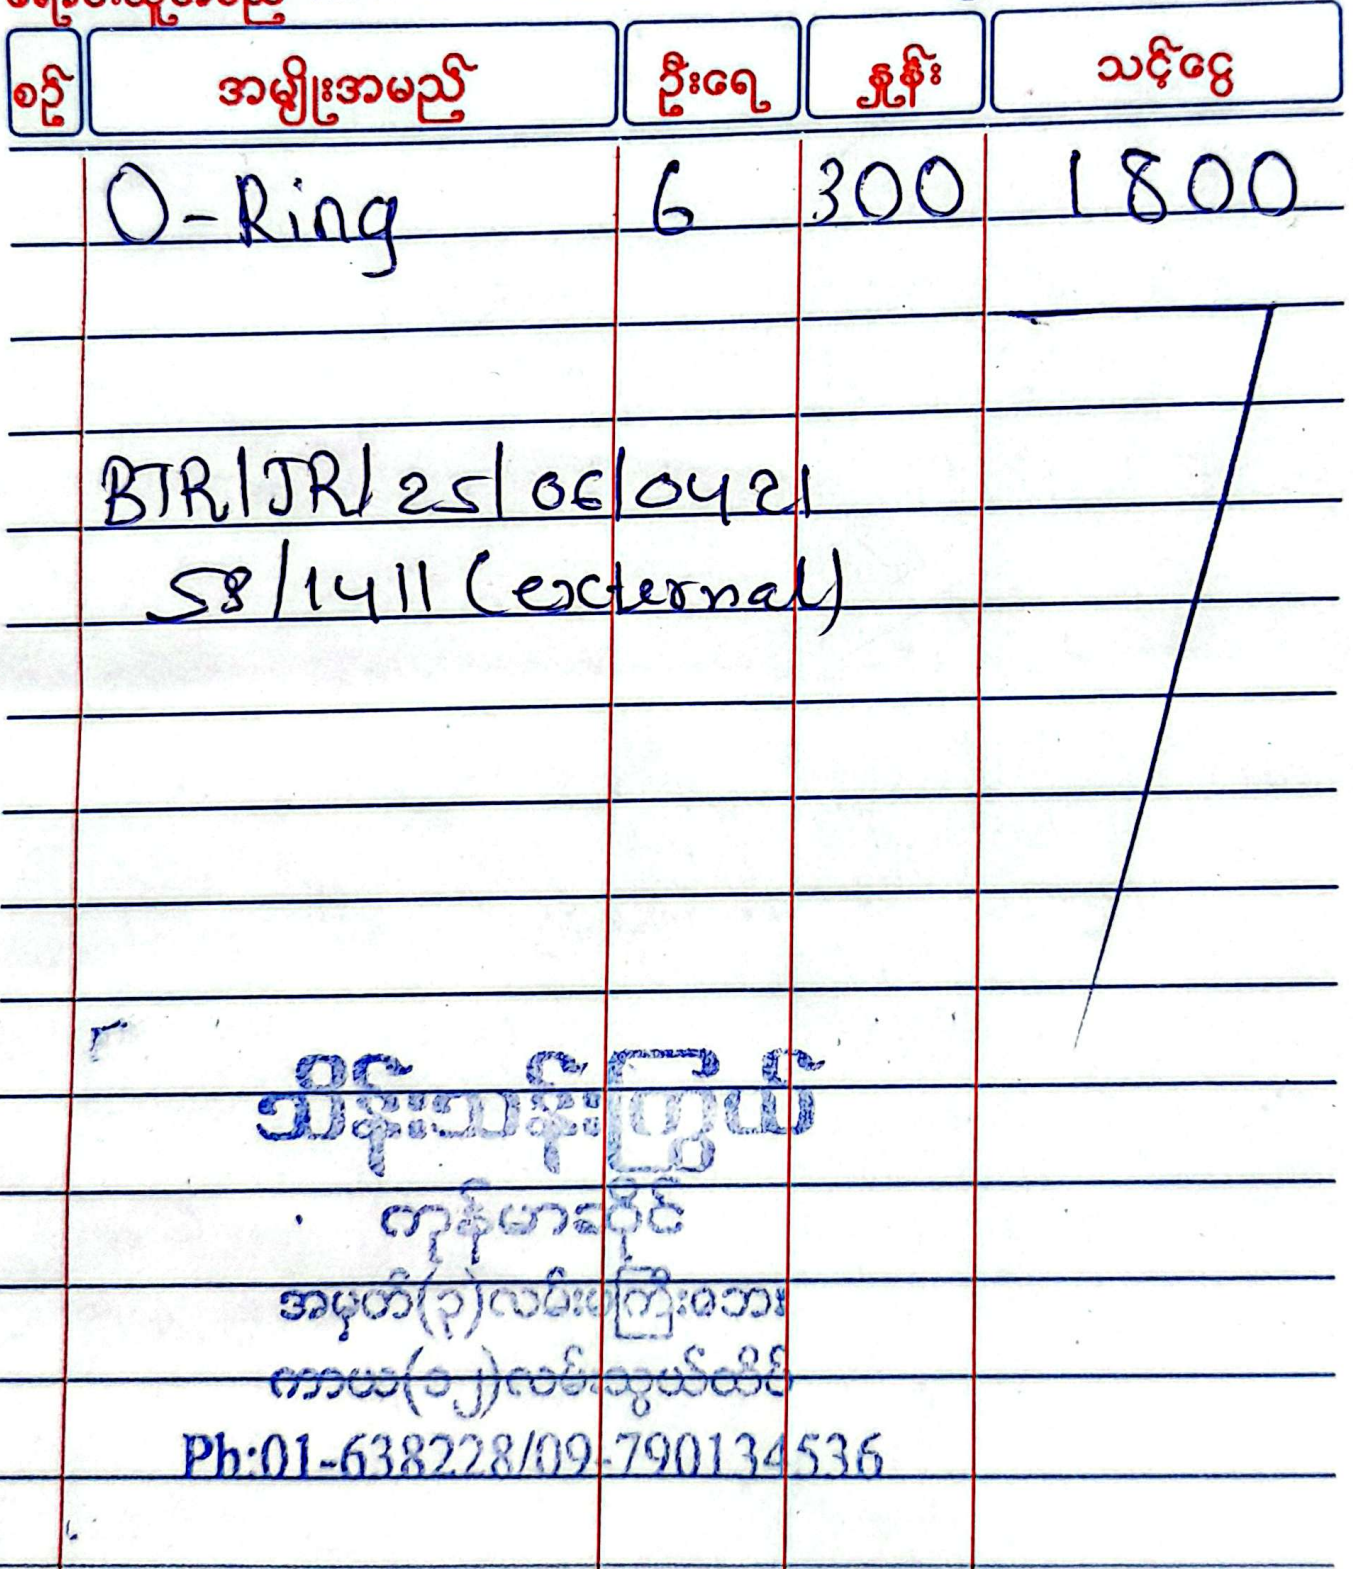 စဉ် အမျိုးအမည် ဦးရေ နှုန်း သင့်ငွေ
O-Ring 6 300 1800
BTR/JR/25/06/0421
58/1411 (external)
သိန်းသန်းကြွယ်
ကုန်မာဆိုင်
အမှတ်(၃)လမ်းမကြီးဘေး
ကာယ(၁၂)လမ်းသွယ်ထိပ်
Ph:01-638228/09-790134536